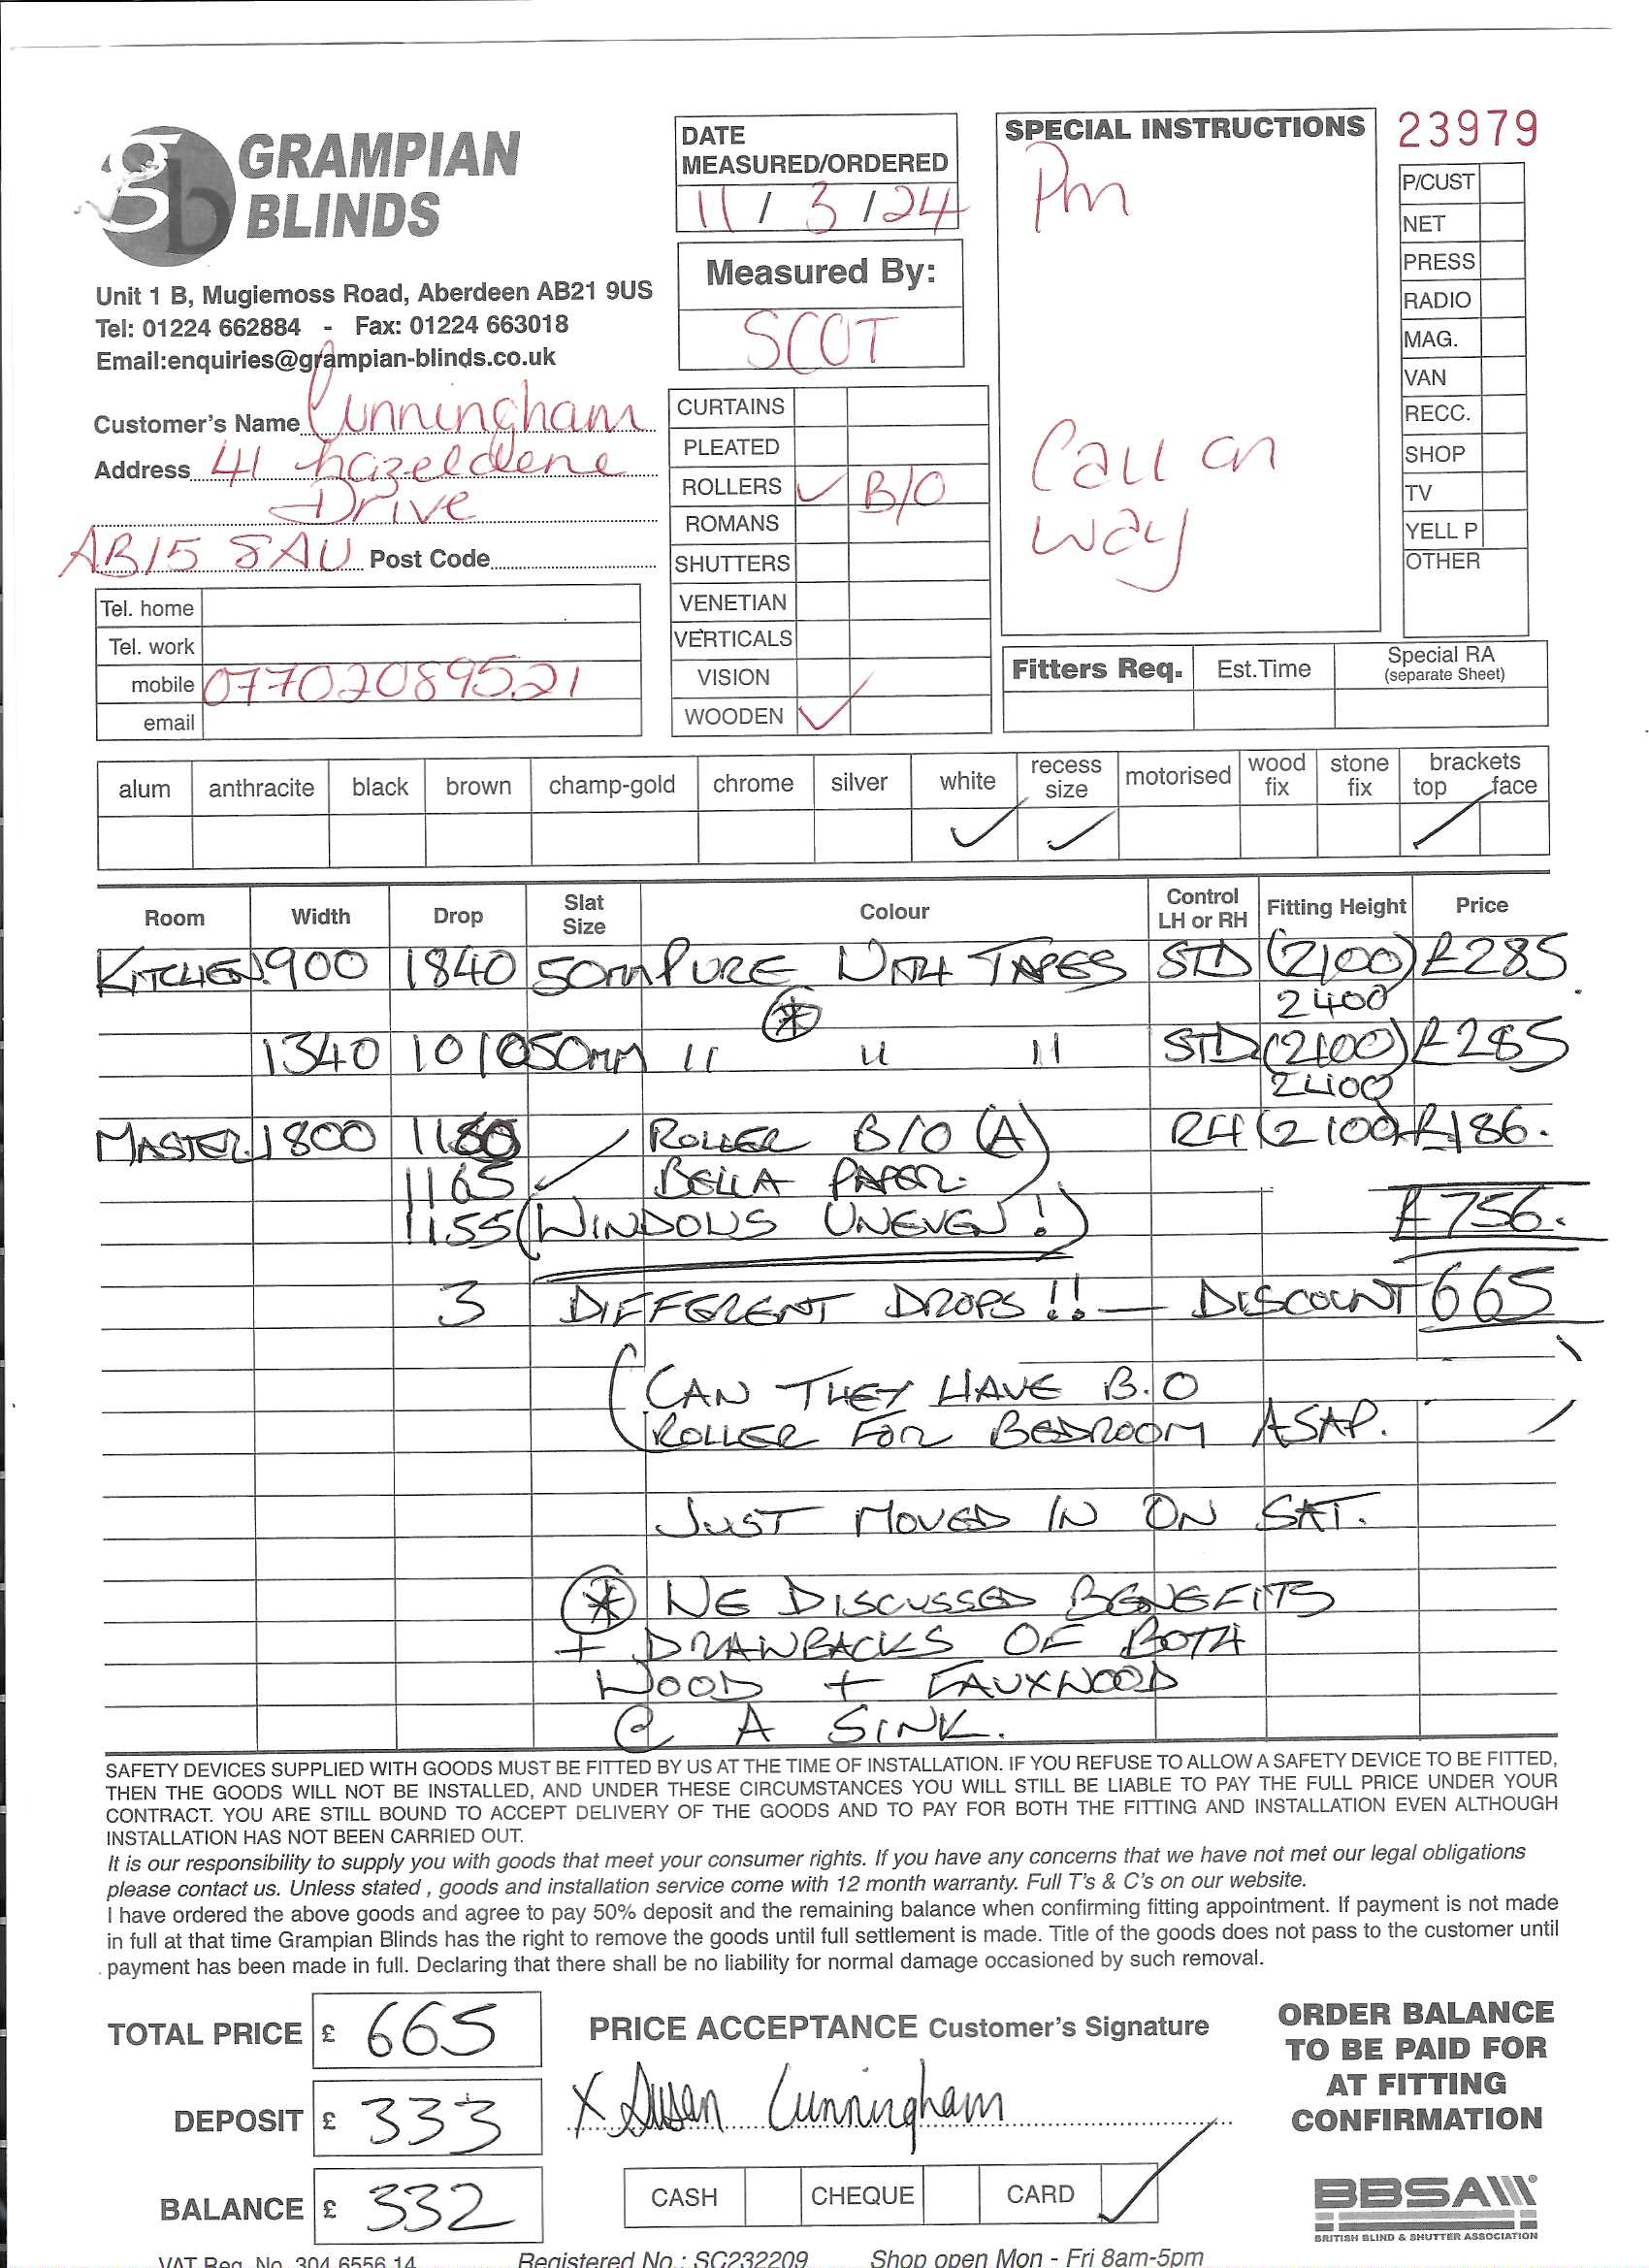 GRAMPIAN
BLINDS
gb
Unit 1 B, Mugiemoss Road, Aberdeen AB21 9US
Tel: 01224 662884 - Fax: 01224 663018
Email:enquiries@grampian-blinds.co.uk
DATE
MEASURED/ORDERED
11 / 3 / 24
Measured By:
SCOT
SPECIAL INSTRUCTIONS
Pm
Call on
way
23979
P/CUST
NET
PRESS
RADIO
MAG.
VAN
RECC.
SHOP
TV
YELL P
OTHER
Customer's Name Cunningham
Address 41 hazeldene
Drive
AB15 8AU Post Code
Tel. home
Tel. work
mobile 07702089521
email
CURTAINS
PLEATED
ROLLERS ✓ B/O
ROMANS
SHUTTERS
VENETIAN
VERTICALS
VISION
WOODEN ✓
Fitters Req. Est.Time Special RA
(separate Sheet)
alum anthracite black brown champ-gold chrome silver white recess size motorised wood fix stone fix brackets top face
✓ ✓ /
Room Width Drop Slat Size Colour Control LH or RH Fitting Height Price
KITCHEN 900 1840 50mm PURE WITH TAPES STD (2100) £285
* 2400
1340 1010 50mm " " " STD (2100) £285
2400
MASTER 1800 1160 / ROLLER B/O (A) RH (2100) £186.
1165 ✓ BELLA PAPER.
1155 (WINDOWS UNEVEN!) £756.
3 DIFFERENT DROPS!! — DISCOUNT 665
(CAN THEY HAVE B.O
ROLLER FOR BEDROOM ASAP.
JUST MOVED IN ON SAT.
* WE DISCUSSED BENEFITS
+ DRAWBACKS OF BOTH
WOOD + FAUXWOOD
@ A SINK.
SAFETY DEVICES SUPPLIED WITH GOODS MUST BE FITTED BY US AT THE TIME OF INSTALLATION. IF YOU REFUSE TO ALLOW A SAFETY DEVICE TO BE FITTED,
THEN THE GOODS WILL NOT BE INSTALLED, AND UNDER THESE CIRCUMSTANCES YOU WILL STILL BE LIABLE TO PAY THE FULL PRICE UNDER YOUR
CONTRACT. YOU ARE STILL BOUND TO ACCEPT DELIVERY OF THE GOODS AND TO PAY FOR BOTH THE FITTING AND INSTALLATION EVEN ALTHOUGH
INSTALLATION HAS NOT BEEN CARRIED OUT.
It is our responsibility to supply you with goods that meet your consumer rights. If you have any concerns that we have not met our legal obligations
please contact us. Unless stated , goods and installation service come with 12 month warranty. Full T's & C's on our website.
I have ordered the above goods and agree to pay 50% deposit and the remaining balance when confirming fitting appointment. If payment is not made
in full at that time Grampian Blinds has the right to remove the goods until full settlement is made. Title of the goods does not pass to the customer until
payment has been made in full. Declaring that there shall be no liability for normal damage occasioned by such removal.
TOTAL PRICE £ 665
DEPOSIT £ 333
BALANCE £ 332
PRICE ACCEPTANCE Customer's Signature
X Susan Cunningham
CASH CHEQUE CARD ✓
ORDER BALANCE
TO BE PAID FOR
AT FITTING
CONFIRMATION
BBSA
BRITISH BLIND & SHUTTER ASSOCIATION
VAT Reg. No. 304 6556 14 Registered No.: SC232209 Shop open Mon - Fri 8am-5pm